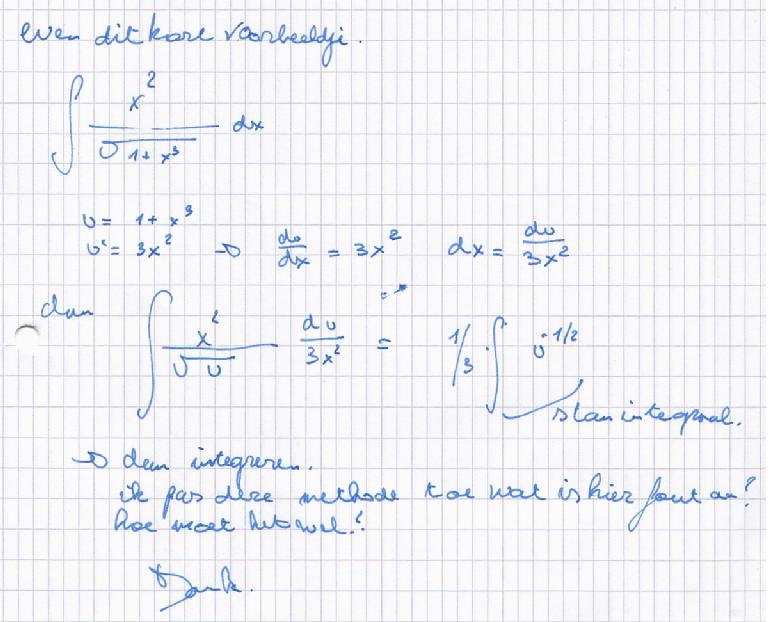 even dit korte voorbeeldje.
∫ x² / √(1 + x³) dx
u = 1 + x³
u' = 3x² → du/dx = 3x² dx = du/3x²
dan ∫ x² / √u du/3x² = 1/3 ∫ u^-1/2
stan integraal.
→ dan integreren.
ik pas deze methode toe wat is hier fout aan?
hoe moet het wel?
Dank.